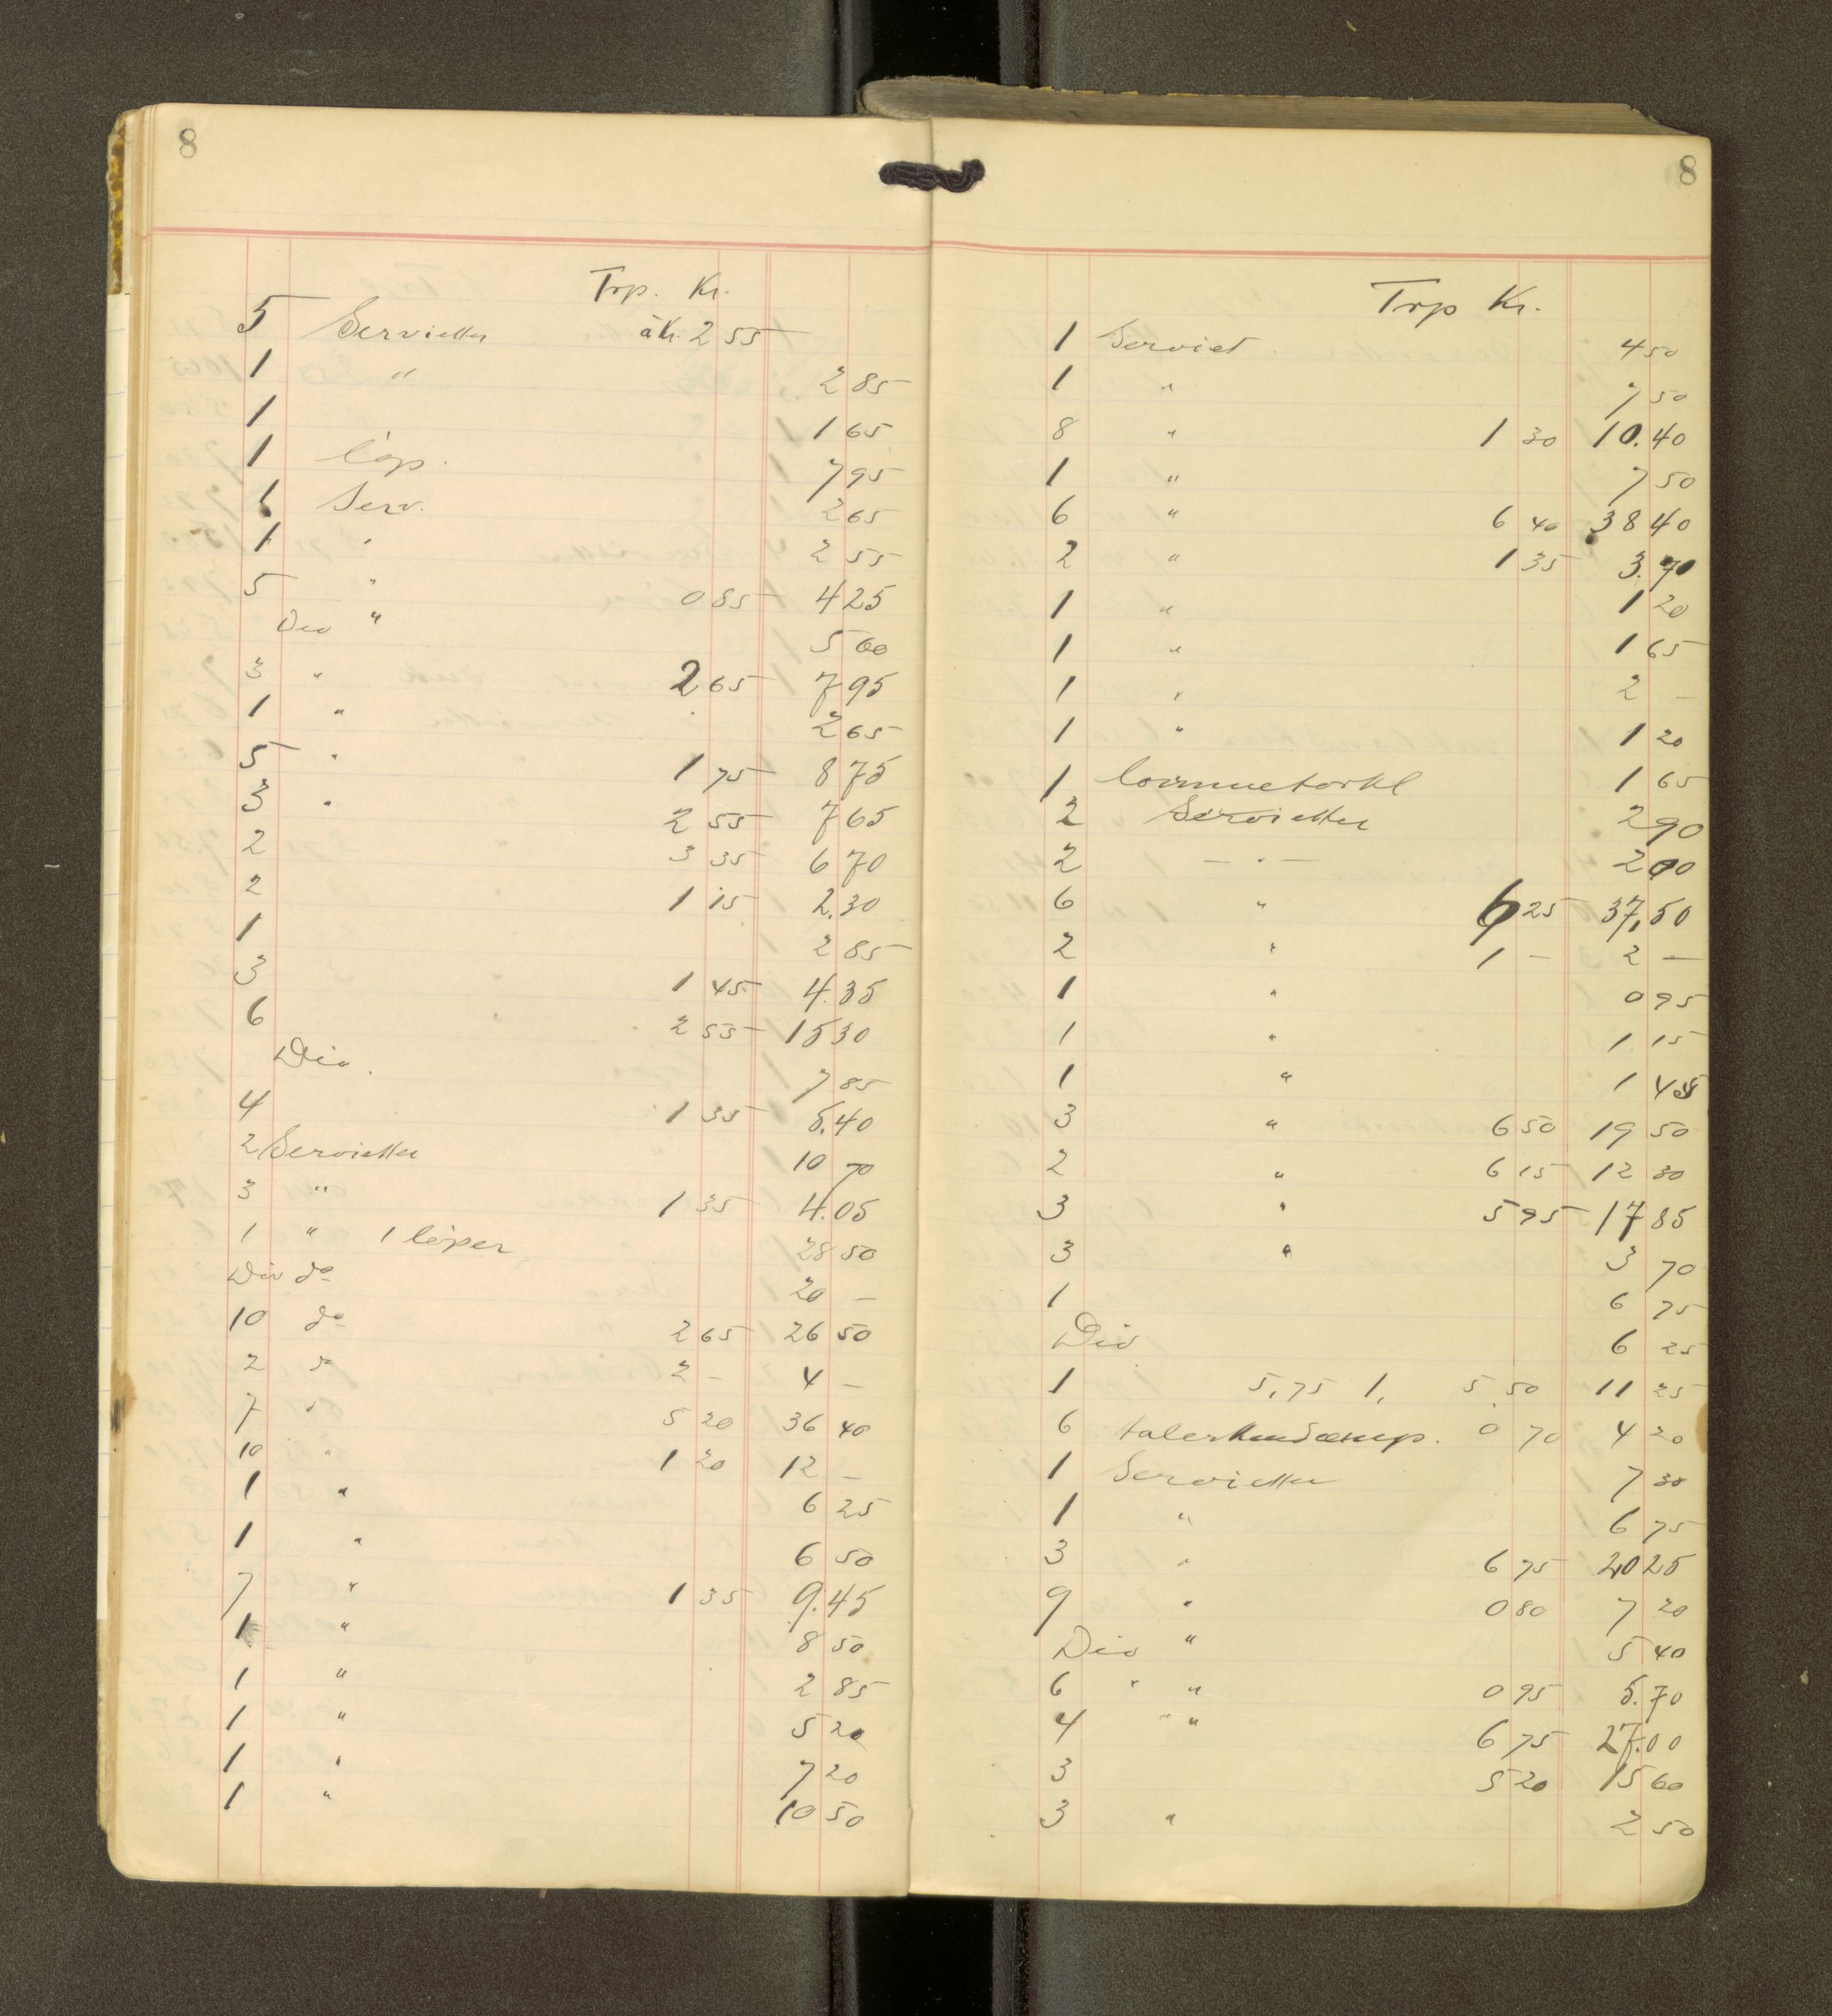 8
Trp. Kr.
5 Servietter à Kr. 2 55
1 " 2 85
1 1 65
1 löp. 7 95
1 Serv. 2 65
1 " 2 55
5 " 0 85 4 25
Div " 5 00
3 " 2 65 7 95
1 " 2 65
5 " 1 75 8 75
3 " 2 55 7 65
2 3 35 6 70
2 1 15 2.30
1 2 85
3 1 45 4.35
6 2 55 15 30
Div. 7 85
4 1 35 5.40
2 Servietter 10 70
3 " 1 35 4.05
1 " 1 löper 28 50
Div do 20 —
10 do 2 65 26 50
2 do 2 – 4 –
7 " 5 20 36 40
10 " 1 20 12 –
1 " 6 25
1 " 6 50
7 " 1 35 9.45
1 " 8 50
1 " 2 85
1 " 5 20
1 " 7 20
1 " 10 50
8
Trp Kr.
1 Serviet 4 50
1 " 7 50
8 " 1 30 10.40
1 " 7 50
6 " 6 40 38 40
2 " 1 35 3.70
1 " 1 20
1 " 1 65
1 " 2 –
1 " 1 20
1 1 65
2 Servietter 2 90
2 — " — 2 00
6 " 6 25 37,50
2 " 1 – 2 —
1 " 0 95
1 " 1 15
1 " 1 45
3 " 6 50 19 50
2 " 6 15 12 30
3 " 5 95 17 85
3 " 3 70
1 6 75
Div 6 25
1 5,75 1, 5 50 11 25
6 0 70 4 20
1 Servietter 7 30
1 " 6 75
3 " 6 75 20 25
9 " 0 80 7 20
Div " 5 40
6 " " 0 95 5.70
4 " " 6 75 27.00
3 5 20 15 60
3 " 2 50